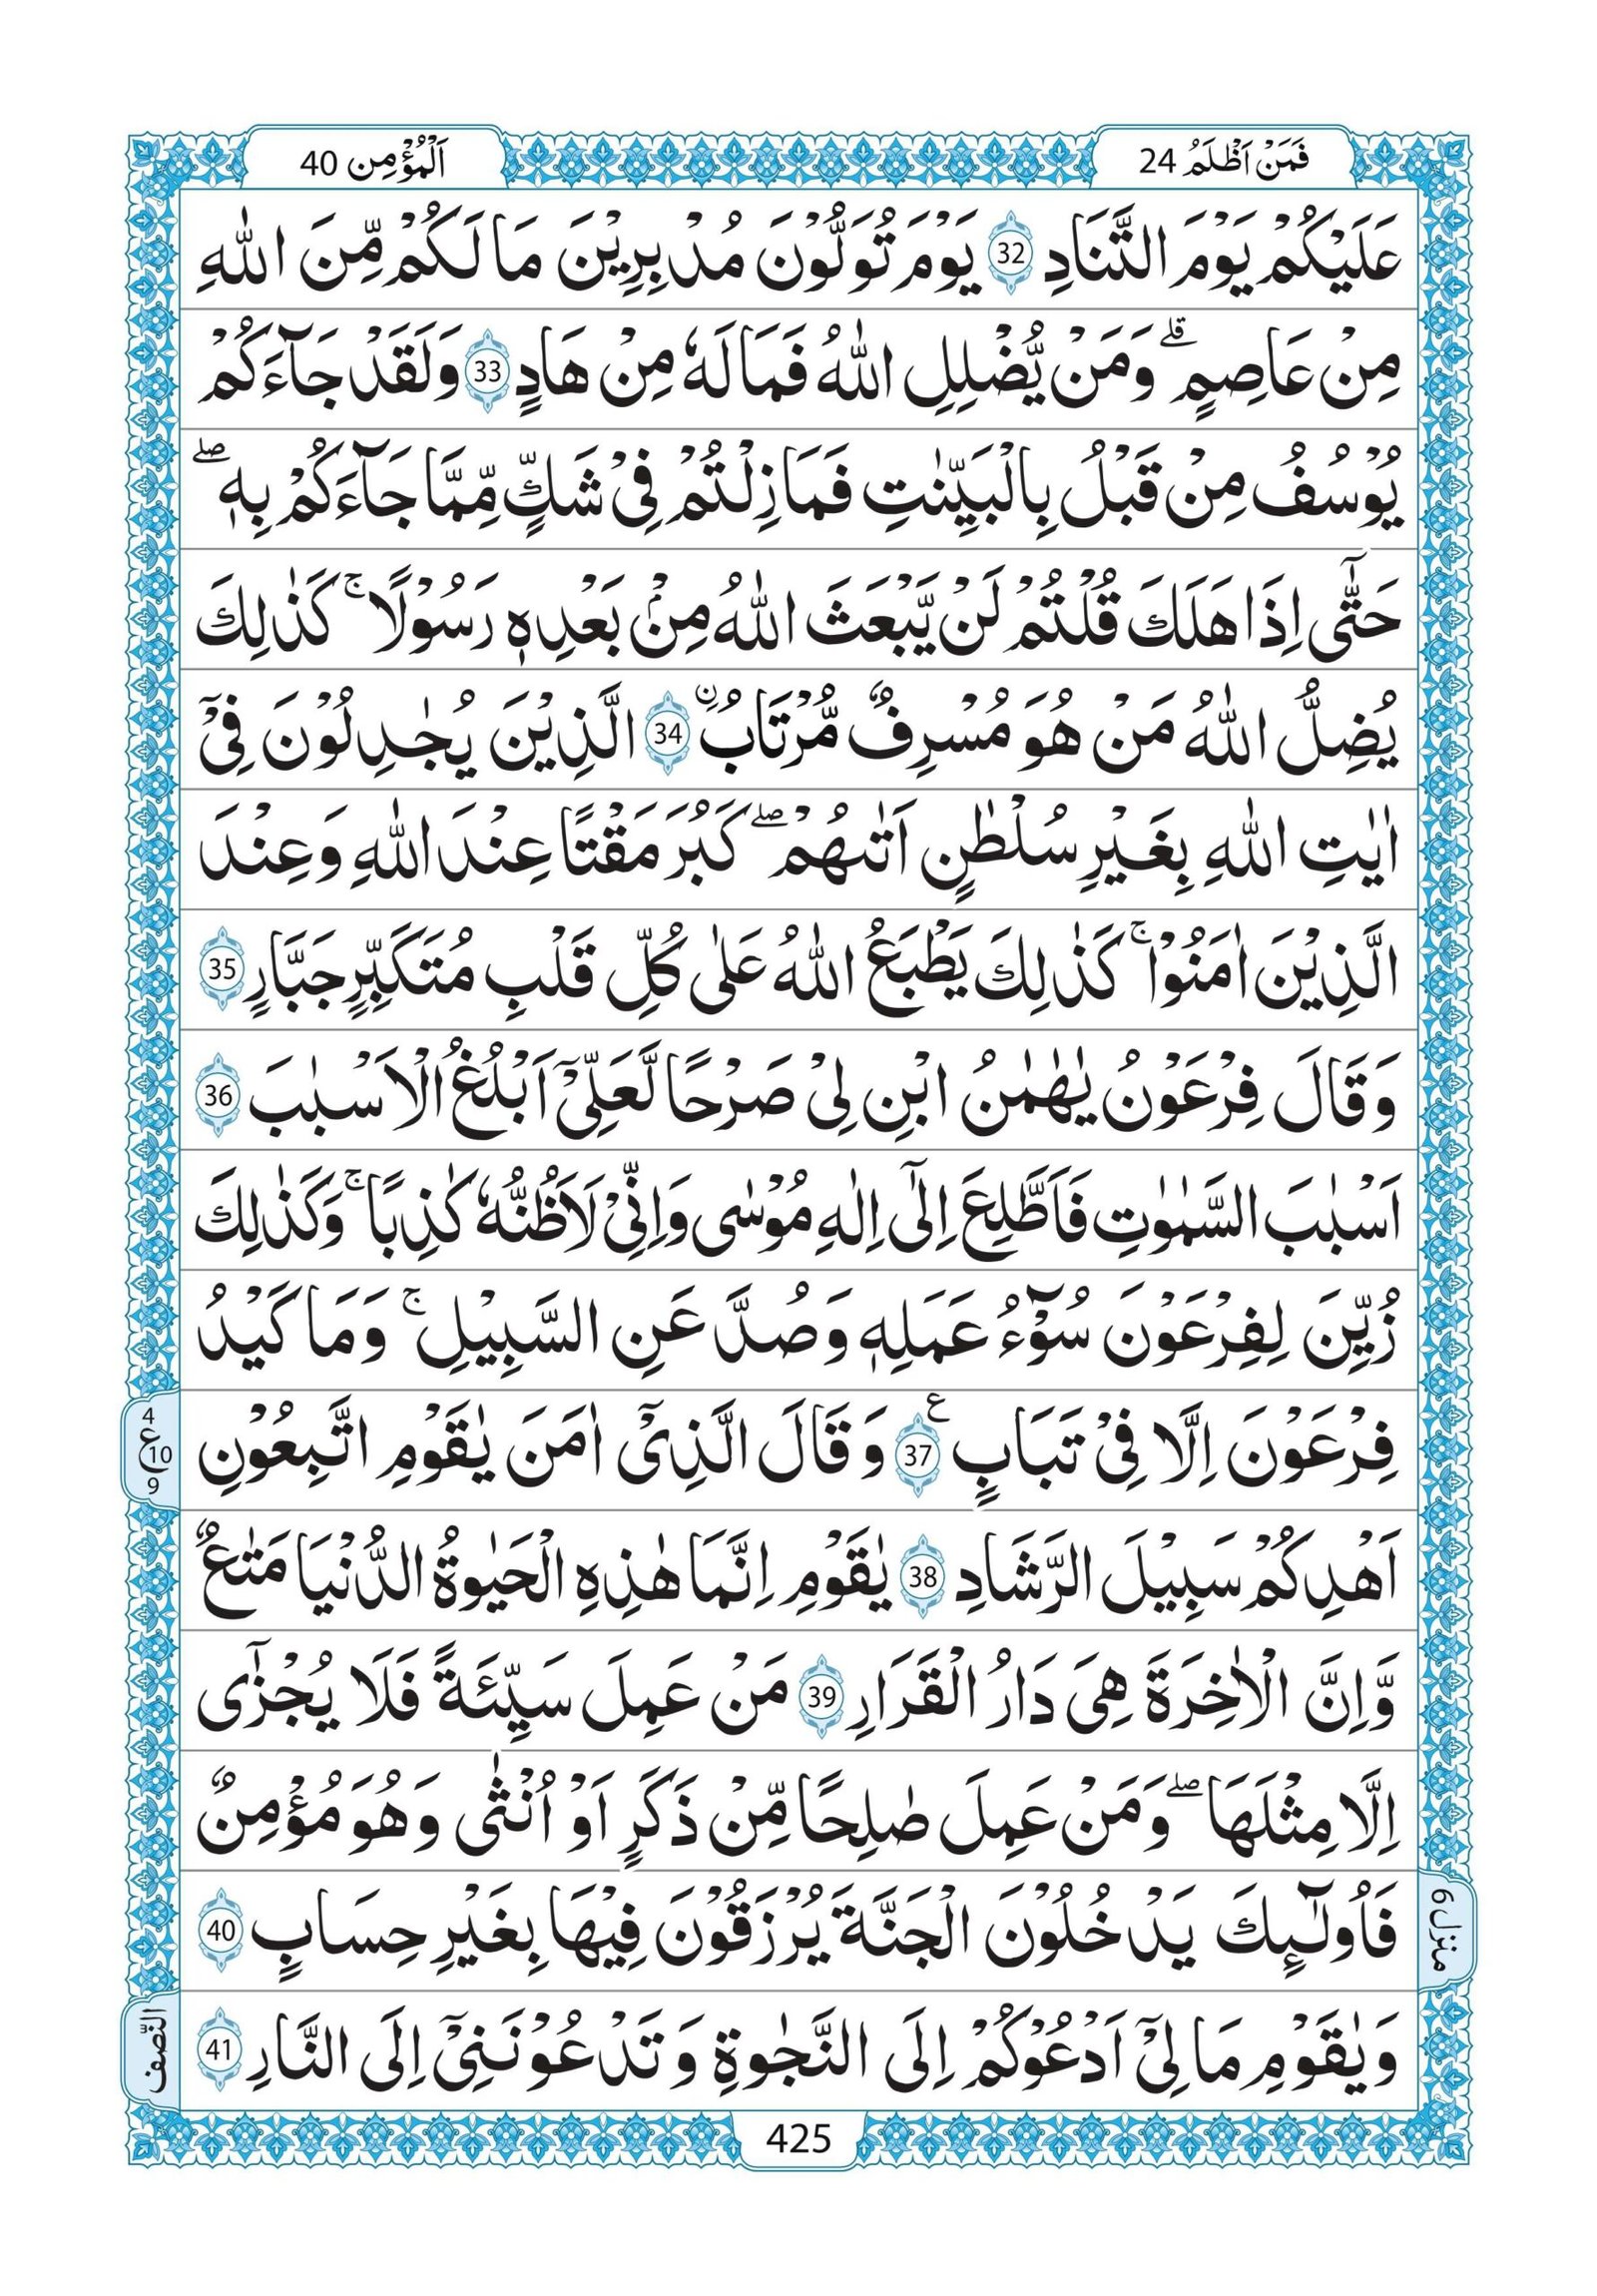 فَمَنْ اَظْلَمُ 24
اَلْمُؤْمِن 40
عَلَيْكُمْ يَوْمَ التَّنَادِ 32 يَوْمَ تُوَلُّوْنَ مُدْبِرِيْنَ مَا لَكُمْ مِّنَ اللّٰهِ
مِنْ عَاصِمٍ ۗ وَمَنْ يُّضْلِلِ اللّٰهُ فَمَا لَهٗ مِنْ هَادٍ 33 وَلَقَدْ جَآءَكُمْ
يُوْسُفُ مِنْ قَبْلُ بِالْبَيِّنٰتِ فَمَا زِلْتُمْ فِيْ شَكٍّ مِّمَّا جَآءَكُمْ بِهٖ ۖ
حَتّٰٓى اِذَا هَلَكَ قُلْتُمْ لَنْ يَّبْعَثَ اللّٰهُ مِنْۢ بَعْدِهٖ رَسُوْلًا ۚ كَذٰلِكَ
يُضِلُّ اللّٰهُ مَنْ هُوَ مُسْرِفٌ مُّرْتَابُ ۨ 34 الَّذِيْنَ يُجٰدِلُوْنَ فِيْٓ
اٰيٰتِ اللّٰهِ بِغَيْرِ سُلْطٰنٍ اَتٰىهُمْ ۖ كَبُرَ مَقْتًا عِنْدَ اللّٰهِ وَعِنْدَ
الَّذِيْنَ اٰمَنُوْا ۚ كَذٰلِكَ يَطْبَعُ اللّٰهُ عَلٰى كُلِّ قَلْبِ مُتَكَبِّرٍ جَبَّارٍ 35
وَقَالَ فِرْعَوْنُ يٰهَامٰنُ ابْنِ لِيْ صَرْحًا لَّعَلِّيْٓ اَبْلُغُ الْاَسْبٰبَ 36
اَسْبٰبَ السَّمٰوٰتِ فَاَطَّلِعَ اِلٰٓى اِلٰهِ مُوْسٰى وَاِنِّيْ لَاَظُنُّهٗ كٰذِبًا ۚ وَكَذٰلِكَ
زُيِّنَ لِفِرْعَوْنَ سُوْٓءُ عَمَلِهٖ وَصُدَّ عَنِ السَّبِيْلِ ۚ وَمَا كَيْدُ
فِرْعَوْنَ اِلَّا فِيْ تَبَابٍ 37 ع وَقَالَ الَّذِيْٓ اٰمَنَ يٰقَوْمِ اتَّبِعُوْنِ
4 ع 10 9
اَهْدِكُمْ سَبِيْلَ الرَّشَادِ 38 يٰقَوْمِ اِنَّمَا هٰذِهِ الْحَيٰوةُ الدُّنْيَا مَتٰعٌ
وَّاِنَّ الْاٰخِرَةَ هِيَ دَارُ الْقَرَارِ 39 مَنْ عَمِلَ سَيِّئَةً فَلَا يُجْزٰٓى
اِلَّا مِثْلَهَا ۖ وَمَنْ عَمِلَ صٰلِحًا مِّنْ ذَكَرٍ اَوْ اُنْثٰى وَهُوَ مُؤْمِنٌ
فَاُولٰٓئِكَ يَدْخُلُوْنَ الْجَنَّةَ يُرْزَقُوْنَ فِيْهَا بِغَيْرِ حِسَابٍ 40
منزل 6
وَيٰقَوْمِ مَا لِيْٓ اَدْعُوْكُمْ اِلَى النَّجٰوةِ وَتَدْعُوْنَنِيْٓ اِلَى النَّارِ 41
النّصف
425